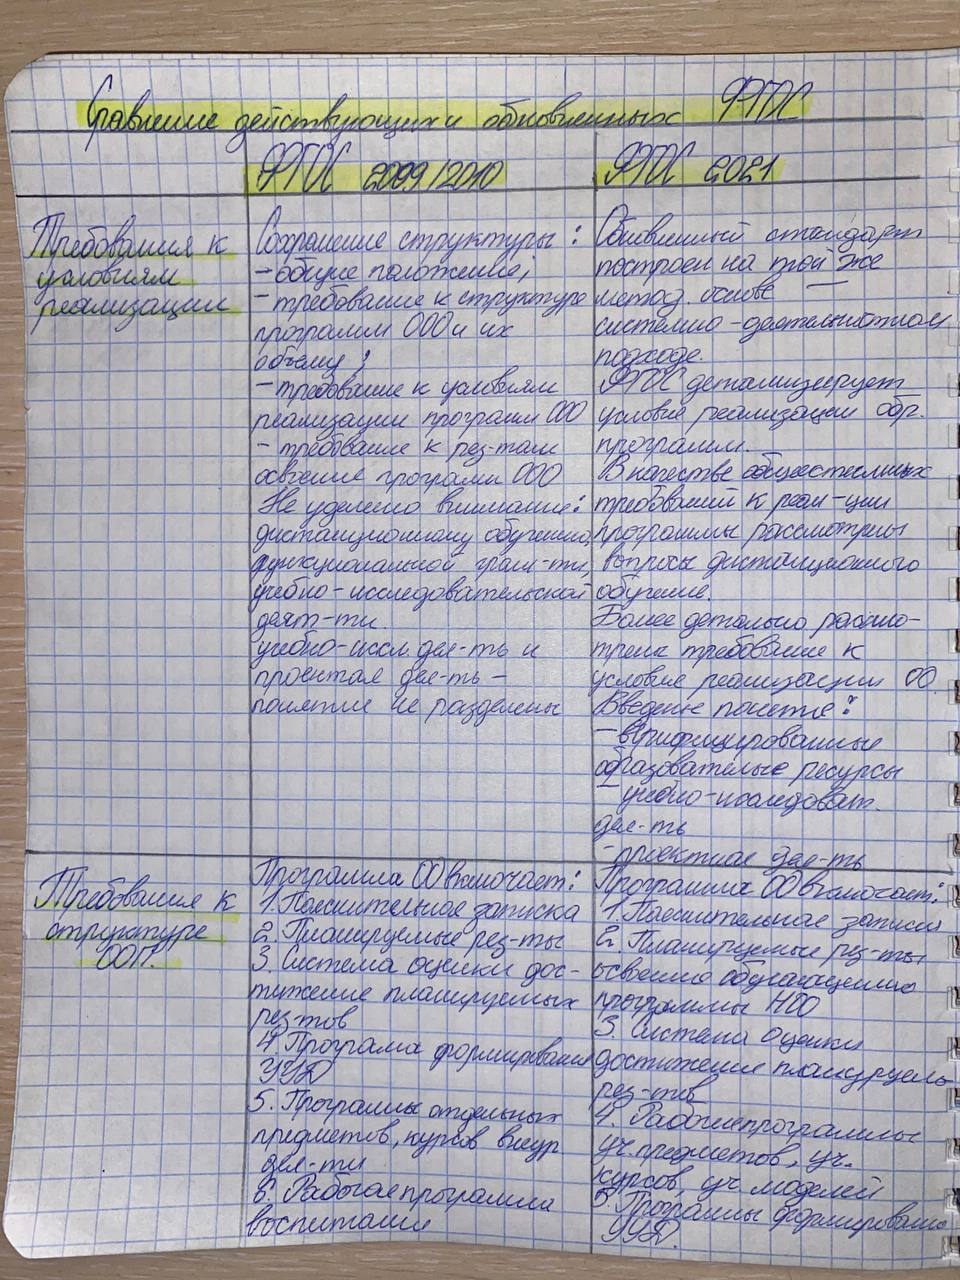 Сравнение действующих и обновленных ФГОС
ФГОС 2009/2010
ФГОС 2021
Требования к
условиям
реализации
Сохранение структуры:
- общие положение;
- требование к структуре
программ ООО и их
объему;
- требование к условиям
реализации программ ООО
- требование к рез-там
освоение программ ООО
Не уделено внимание:
дистанционному обучению,
функциональной грам-ти,
учебно-исследовательской
деят-ти.
учебно-иссл. дея-ть и
проектая дея-ть -
понятие не разделены
Обновленный стандарт
построен на той же
метод. основе —
системно-деятельностном
подходе.
ФГОС детализирует
условие реализации обр.
программ.
В качестве общесистемных
требований к реал-ции
программы рассмотрены
вопросы дистанционного
обучение.
Более детально рассмо-
трены требование к
условие реализации ОО
Введены понятие:
- верифицированные
образовательные ресурсы
- учебно-исследоват.
дея-ть
- проектная дея-ть
Требования к
структуре
ООП.
Программа ОО включает:
1. Пояснительное записка
2. Планируемые рез-ты
3. Система оценки дос-
тижение планируемых
рез-тов
4. Програма формирования
УУД
5. Программы отдельных
предметов, курсов внеур
дея-ти
6. Рабочая программа
воспитания
Программа ОО включает:
1. Пояснительное записка
2. Планируемые рез-ты
освоению обучающимися
программы НОО
3. Система оценки
достижение планируемых
рез-тов
4. Рабочие программы
уч. предметов, уч.
курсов, уч моделей
5. Программы формировано
УУД.